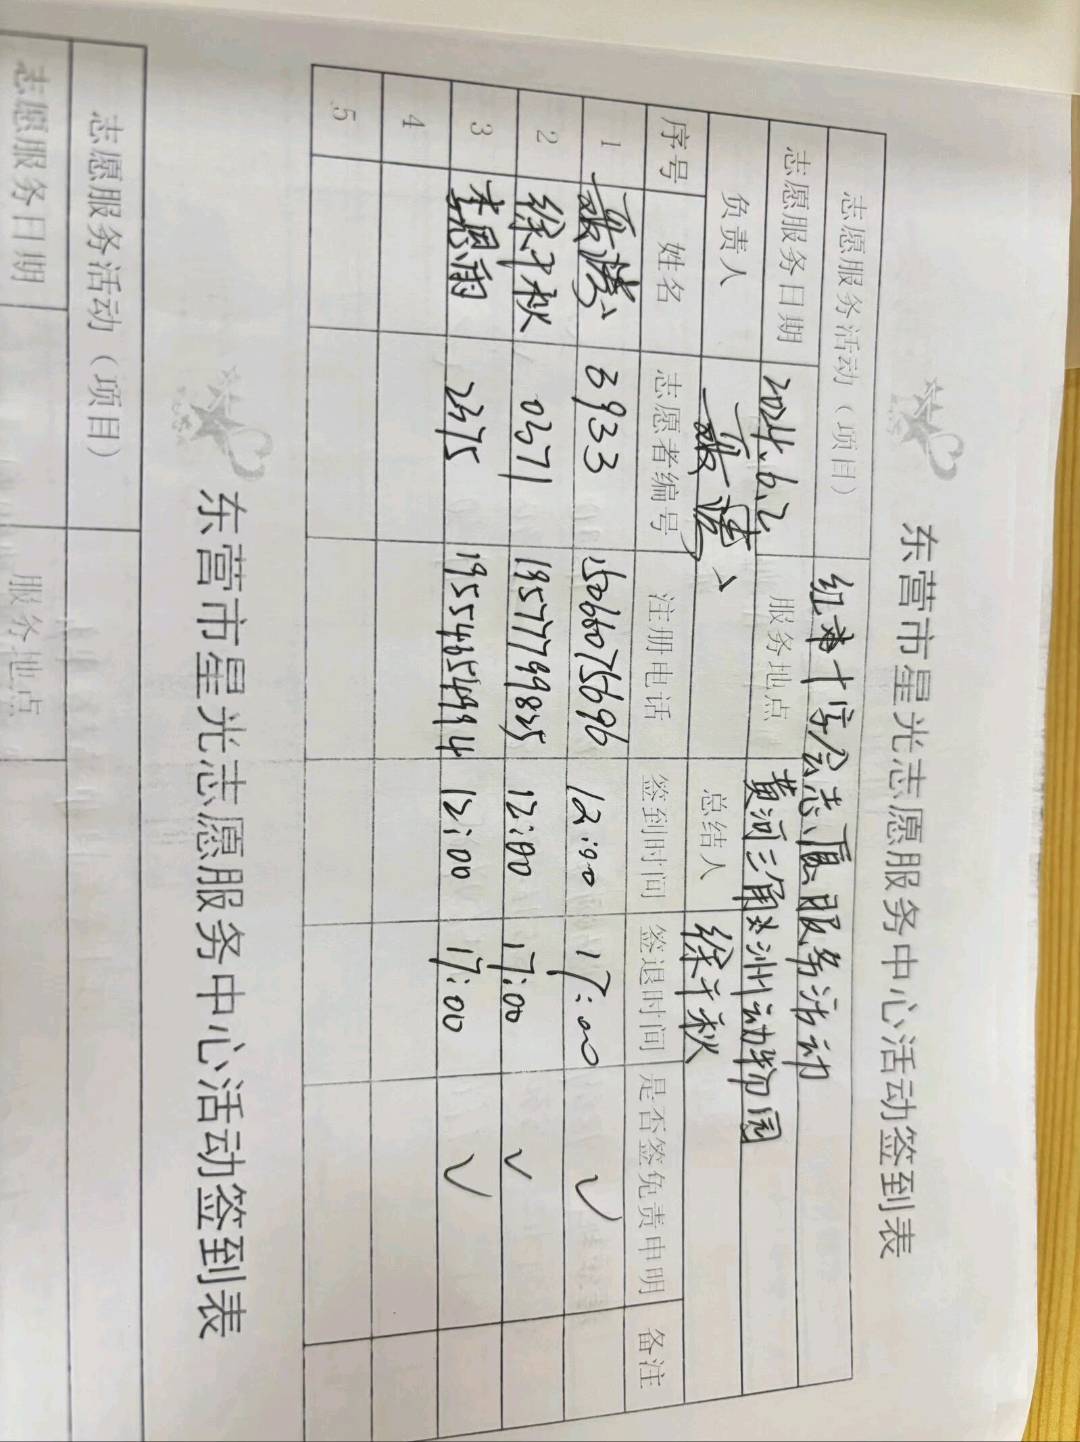 东营市星光志愿服务中心活动签到表
志愿服务活动（项目） 红十字会志愿服务活动
志愿服务日期 2024.6.2 服务地点 黄河三角洲动物园
负责人 总结人 徐千秋
序号 姓名 志愿者编号 注册电话 签到时间 签退时间 是否签免责申明 备注
1 3933 15066075696 12:00 17:00 ✓
2 徐千秋 0371 19577799835 12:00 17:00 ✓
3 李恩雨 2475 19554654994 12:00 17:00 ✓
4
5
东营市星光志愿服务中心活动签到表
志愿服务活动（项目）
志愿服务日期 服务地点